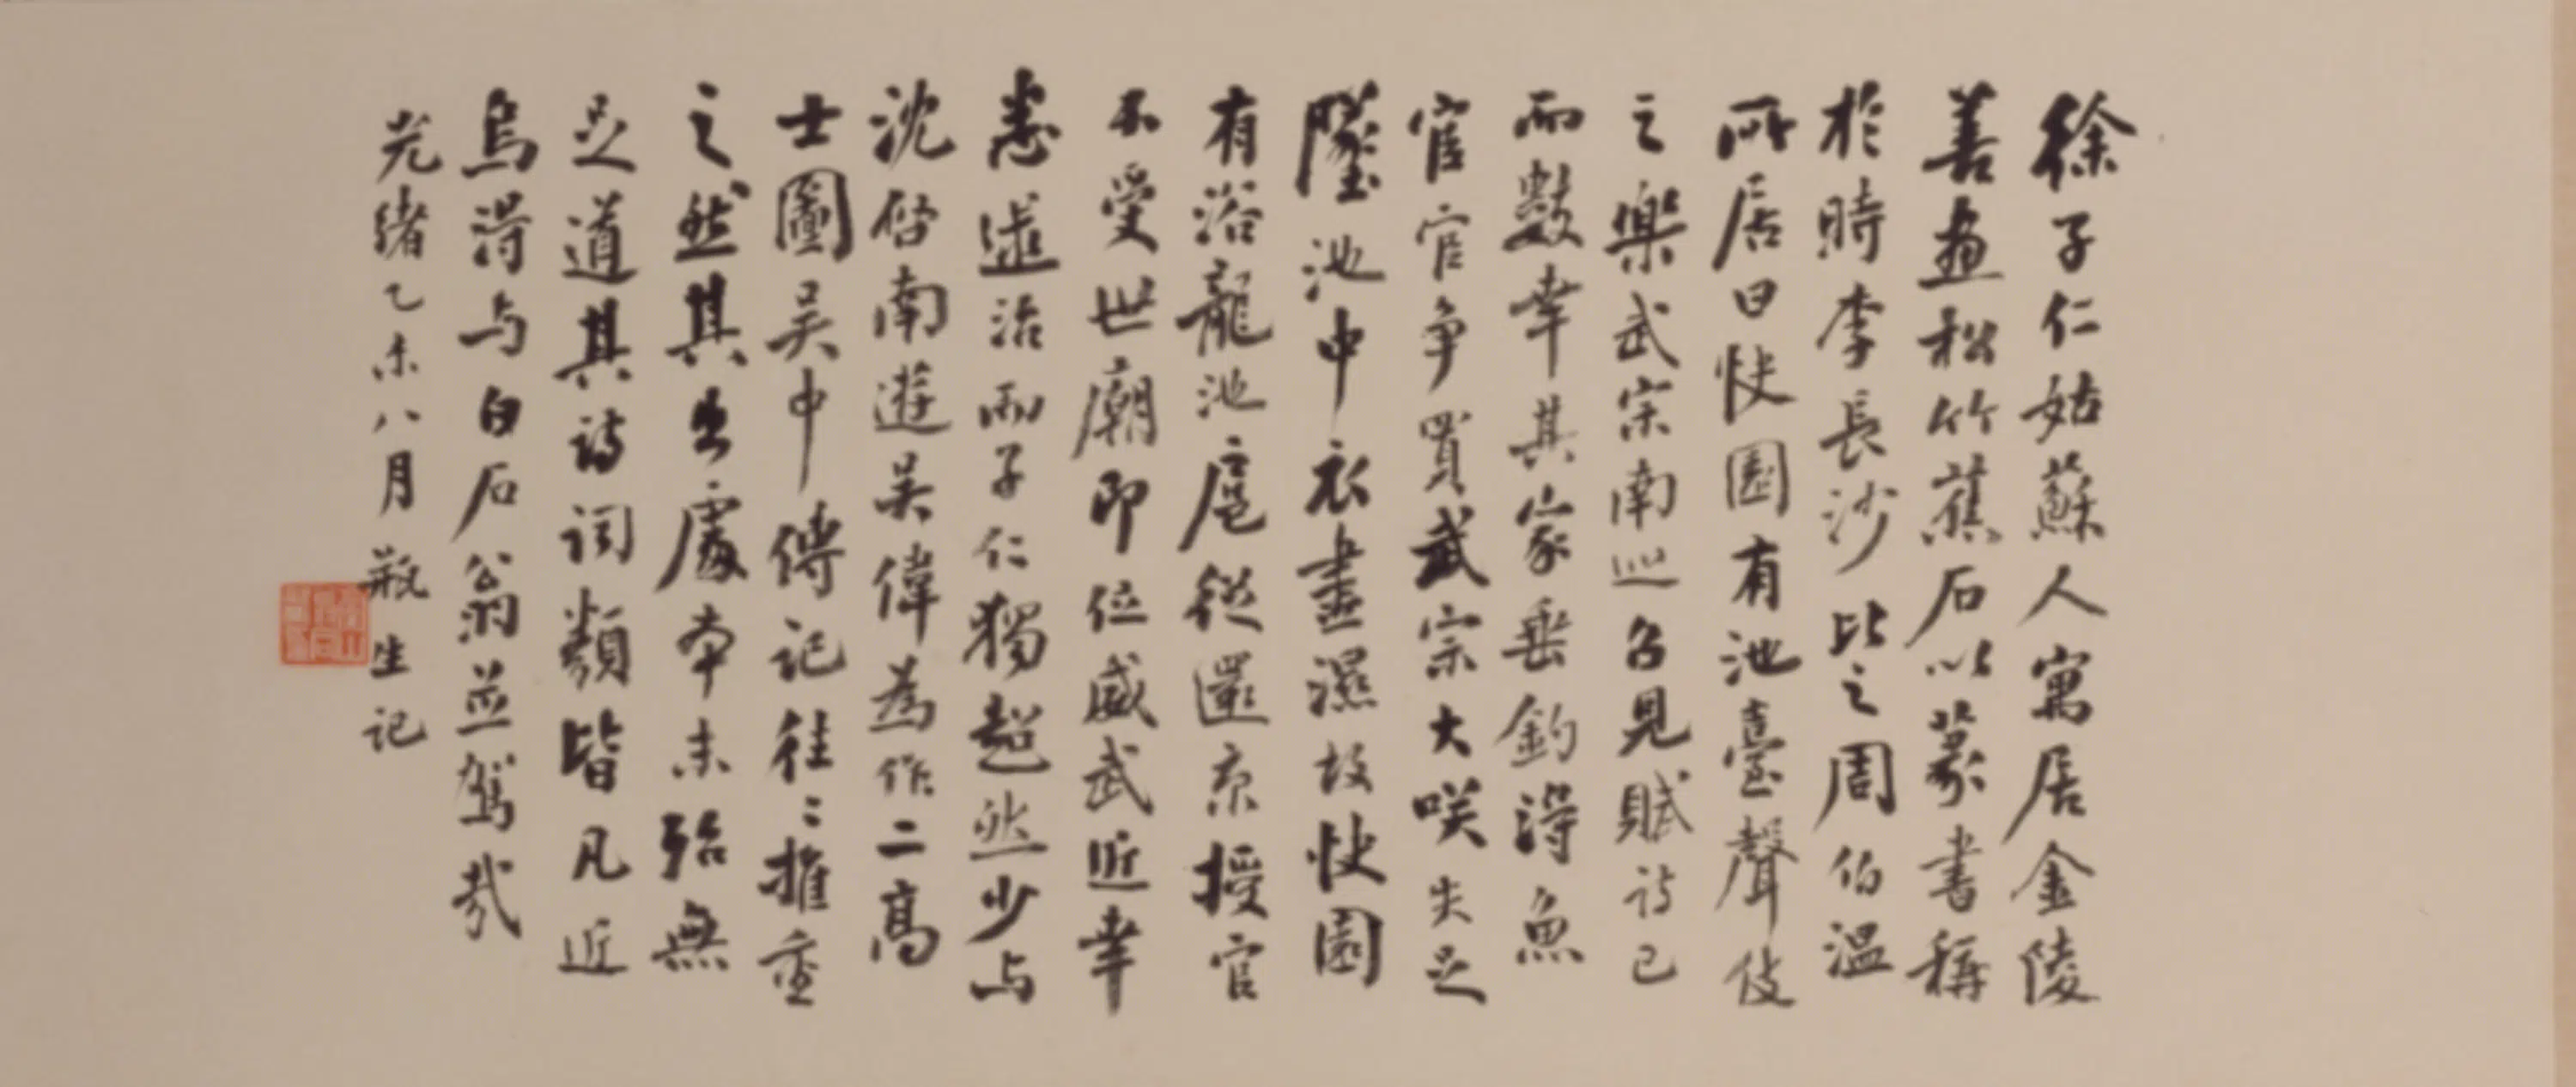 徐子仁姑蘇人寓居金陵
善畫松竹蕉石以篆書稱
於時李長沙比之周伯溫
所居曰快園有池臺聲伎
之樂武宗南巡召見賦詩已
而數幸其家垂釣得魚
宦官争買武宗大咲失足
墬池中衣盡濕故快園
有浴龍池扈從還京授官
不受世廟即位威武近幸
悉逮治而子仁獨超然少与
沈啓南遊吴偉為作二高
士圖吴中傳記往〻推重
之然其出處本末殆無
足道其詩词類皆凡近
烏得与白石翁並駕哉
光緒乙未八月瓶生记